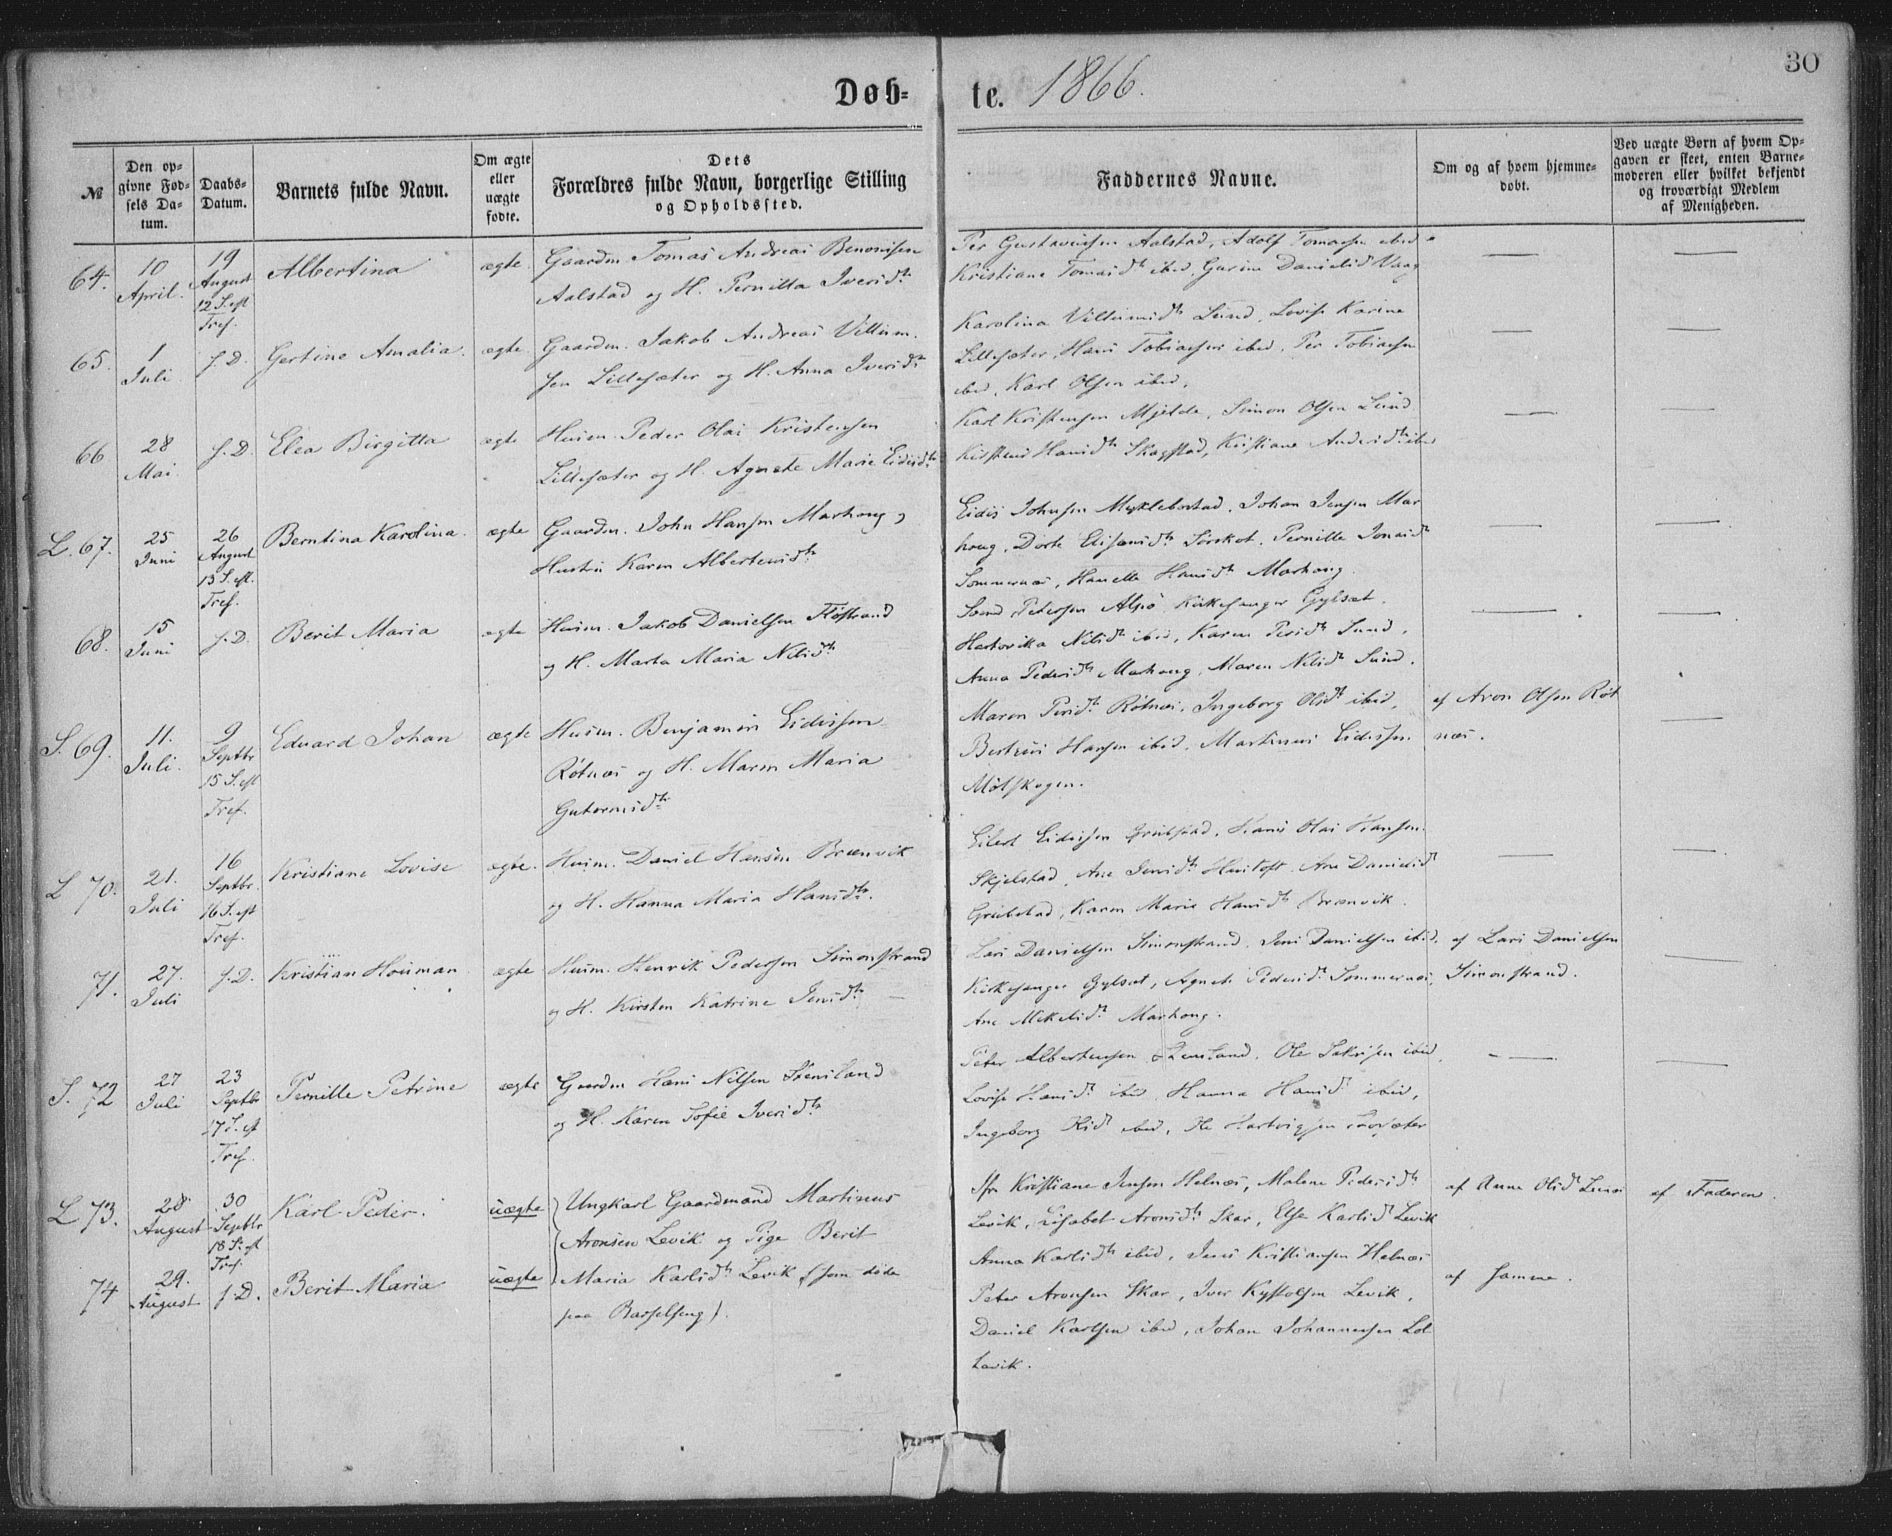 30
Døb= te. 1866.
№
Den op=
givne Fød=
sels Da=
tum.
Daabs=
Datum.
Barnets fulde Navn.
Om ægte
eller
uægte
fødte.
Dets
Forældres fulde Navn, borgerlige Stilling
og Opholdssted.
Faddernes Navne.
Om og af hvem hjemme=
døbt.
Ved uægte Børn af hvem Op=
gaven er skeet, enten Barne=
moderen eller hvilket bekjendt
og troværdigt Medlem
af Menigheden.
64. 10 April. 19 August 12 S. eft Tref. Albertina ægte. Gaardm. Tomas Andreas Benonisen
Aalstad og H. Pernilla Iversdtr
Per Gustavussen Aalstad, Adolf Tomassen ibid
Kristiane Tomasdtr ibid, Gurine Danielsd Vaag
65. 1 Juli f. D. Gertine Amalia. ægte Gaardm. Jakob Andreas Villum
sen Lillesæter og H. Anna Iversdtr
Karolina Villumsdtr Lund, Lovise Karine
Lillesæter, Hans Tobiassen ibid, Per Tobiassen
ibid, Karl Olsen ibid.
66. 28 Mai. f. D. Elea Birgitta ægte Husm. Peder Olai Kristensen
Lillesæter og H. Agnete Marie Eidisdtr
Karl Kristensen Mjelde, Simon Olsen Lund
Kirstine Hansdtr Skagstad, Kristiane Andersdtr ibid
L. 67. 25 Juni 26 August 13 S. eft. Tref. Berntina Karolina. ægte Gaardm. John Hansen Marhaug
Hustru Karen Albertsdtr
Eidis Johnsen Myklebostad, Johan Jensen Mar
haug, Dorte Sørskot, Pernille Jonasdtr
Sommernæs, Hansdtr Marhaug.
68. 15 Juni f. D. Berit Maria ægte Husm. Jakob Danielsen Flöstrand
og H. Marta Maria Nilsdtr
Petersen Alsø, Kirkesanger Gylset.
Hartvika Nilsdtr ibid, Karen Persdtr Lund,
Anna Pedersdtr Marhaug, Maren Nilsdtr Lund.
S. 69. 11. Juli. 9 Septbr 15 S. eft Tref. Eduard Johan ægte Husm. Benjamin Eidissen
Røtnæs og H. Maren Maria
Gutormsdtr
Maren Persdtr Røtnæs, Ingeborg Olsdtr ibid,
Berteus Hansen ibid, Martinus Eidissen
Mölskogen.
af Aron Olsen Røt
næs.
L 70. 21. Juli 16 Septbr. 16 S. eft Tref. Kristiane Lovise ægte. Husm. Daniel Hansen Brænvik
og H. Hanna Maria Hansdtr.
Eilert Eidissen Grubstad, Hans Olai Hansen
Skjelstad, Ane Jensdtr Hanstoft, Ane Danielsdtr
Grubstad, Karen Marie Hansdtr Brænvik.
71. 27. Juli f. D. Kristian Houman ægte Husm. Henrik Pedersen Simonstrand
og H. Kirsten Katrine Jensdtr
Lars Danielsen Simonstrand, Jens Danielsen ibid,
Kirkesanger Gylset, Agnete Pedersdtr Sommernæs,
Ane Mikelsdtr Marhaug.
af Lars Danielsen
Simonstrand.
S. 72 27 Juli 23 Septbr 17 S. eft Tref. Pernille Petrine ægte Gaardm Hans Nilsen Stensland
og H. Karen Sofie Iversdtr
Peter Albertsen Stensland, Ole Sakrisen ibid
Lovise Hansdtr ibid, Hanna Hansdtr ibid,
Ingeborg ibid, Ole Hartvigsen
L 73. 28 August 30 Septbr 18 S. eft Tref. Karl Peder. uægte Ungkarl Gaardmand Martinus
Aronsen Levik og Pige Berit
Maria Karlsdtr Levik (som døde
paa Barselseng).
Kristiane Jensen Helnæs, Malene Pedersdtr
Levik, Lisabet Aronsdtr Skar, Else Karlsdtr Levik
Anna Karlsdtr ibid, Jens Kristiansen Helnæs
af Anne Olsdtr af Faderen.
74 29. August f. D. Berit Maria uægte
Peter Aronsen Skar, Iver Levik,
Daniel Karlsen ibid, Johan Johannessen
havik.
af Samme.